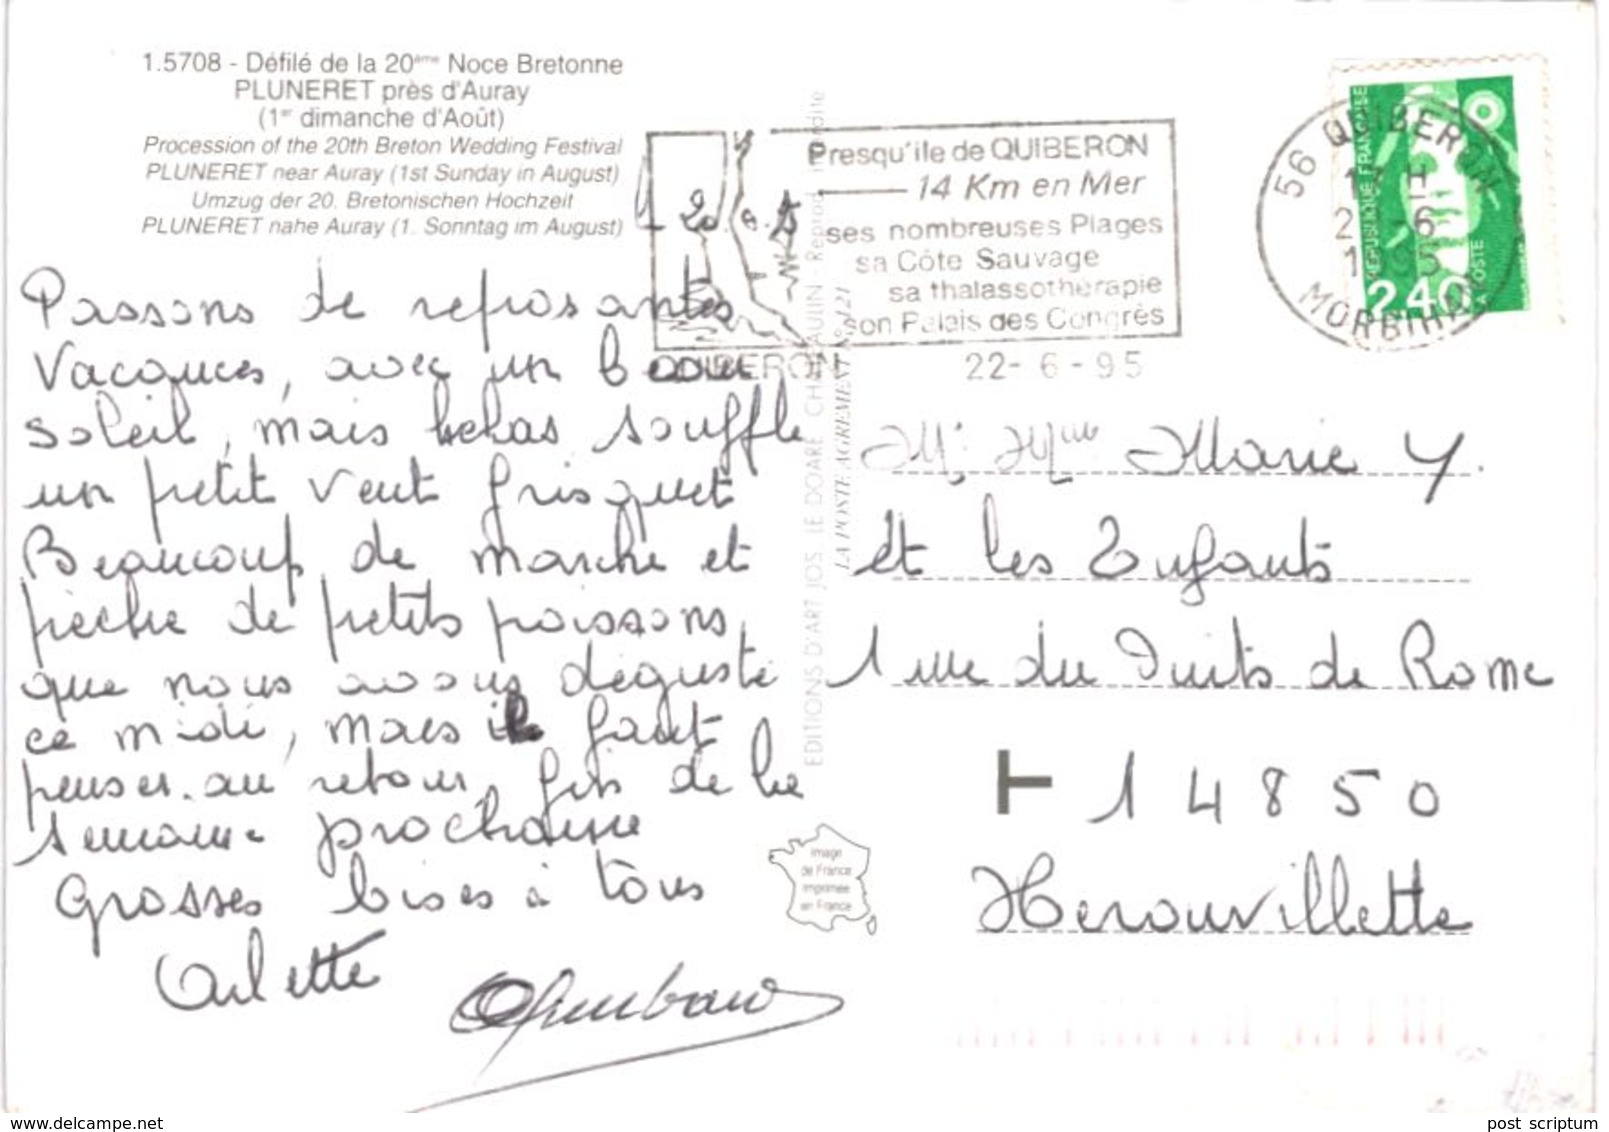 1.5708 - Défilé de la 20ème Noce Bretonne
PLUNERET près d'Auray
(1er dimanche d'Août)
Procession of the 20th Breton Wedding Festival
PLUNERET near Auray (1st Sunday in August)
Umzug der 20. Bretonischen Hochzeit
PLUNERET nahe Auray (1. Sonntag im August)
Presqu'ile de QUIBERON
14 Km en Mer
ses nombreuses Plages
sa Côte Sauvage
sa thalassothérapie
son Palais des Congrès
QUIBERON
22-6-95
56 QUIBERON
MORBIHAN
REPUBLIQUE FRANÇAISE
2,40
LA POSTE
Passons de reposantes
Vacances, avec un beau
soleil, mais helas souffle
un petit vent frisquet
Beaucoup de marche et
pêche de petits poissons
que nous avons dégusté
ce midi, mais il faut
penser au retour, fin de la
semaine prochaine
Grosses bises à tous
Arlette
EDITIONS D'ART JOS LE DOARÉ CHATEAULIN - Reprod. interdite
LA POSTE AGREMENT N° 121
Mr Mme Marie Y.
et les Enfants
1 rue du Puits de Rome
T 14850
Herouvillette
Image
de France
imprimée
en France
www.delcampe.net
post scriptum